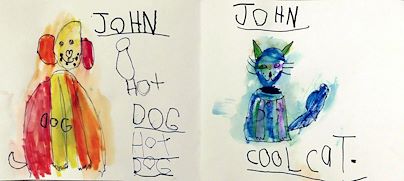 JOHN
HOT
DOG
HOT
DOG
DOG
JOHN
COOL CAT.